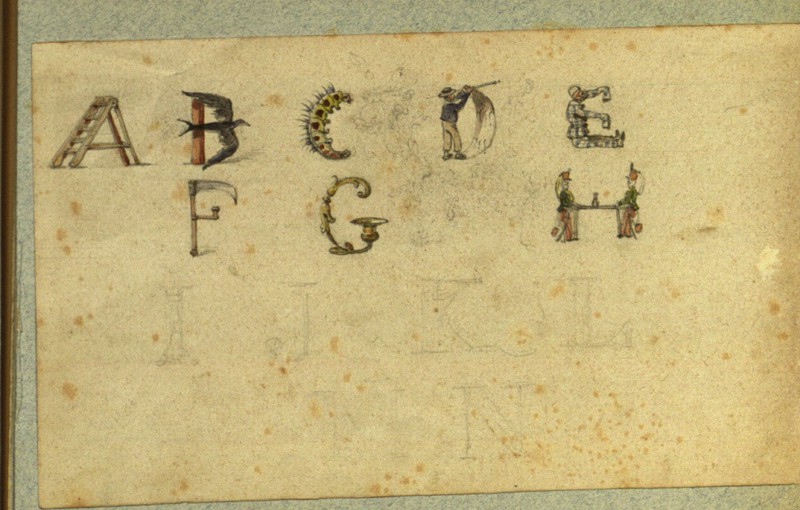 A B C D E
F G H
I J K L
M N